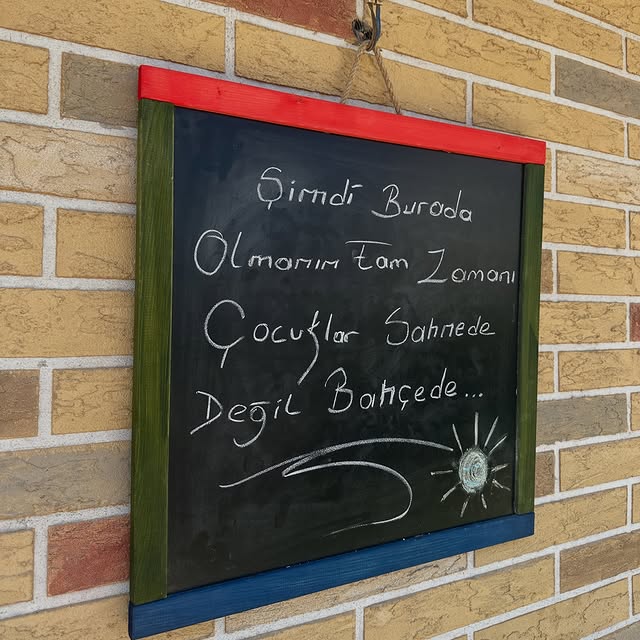 Şimdi Burada
Olmanın Tam Zamanı
Çocuklar Sahnede
Değil Bahçede...